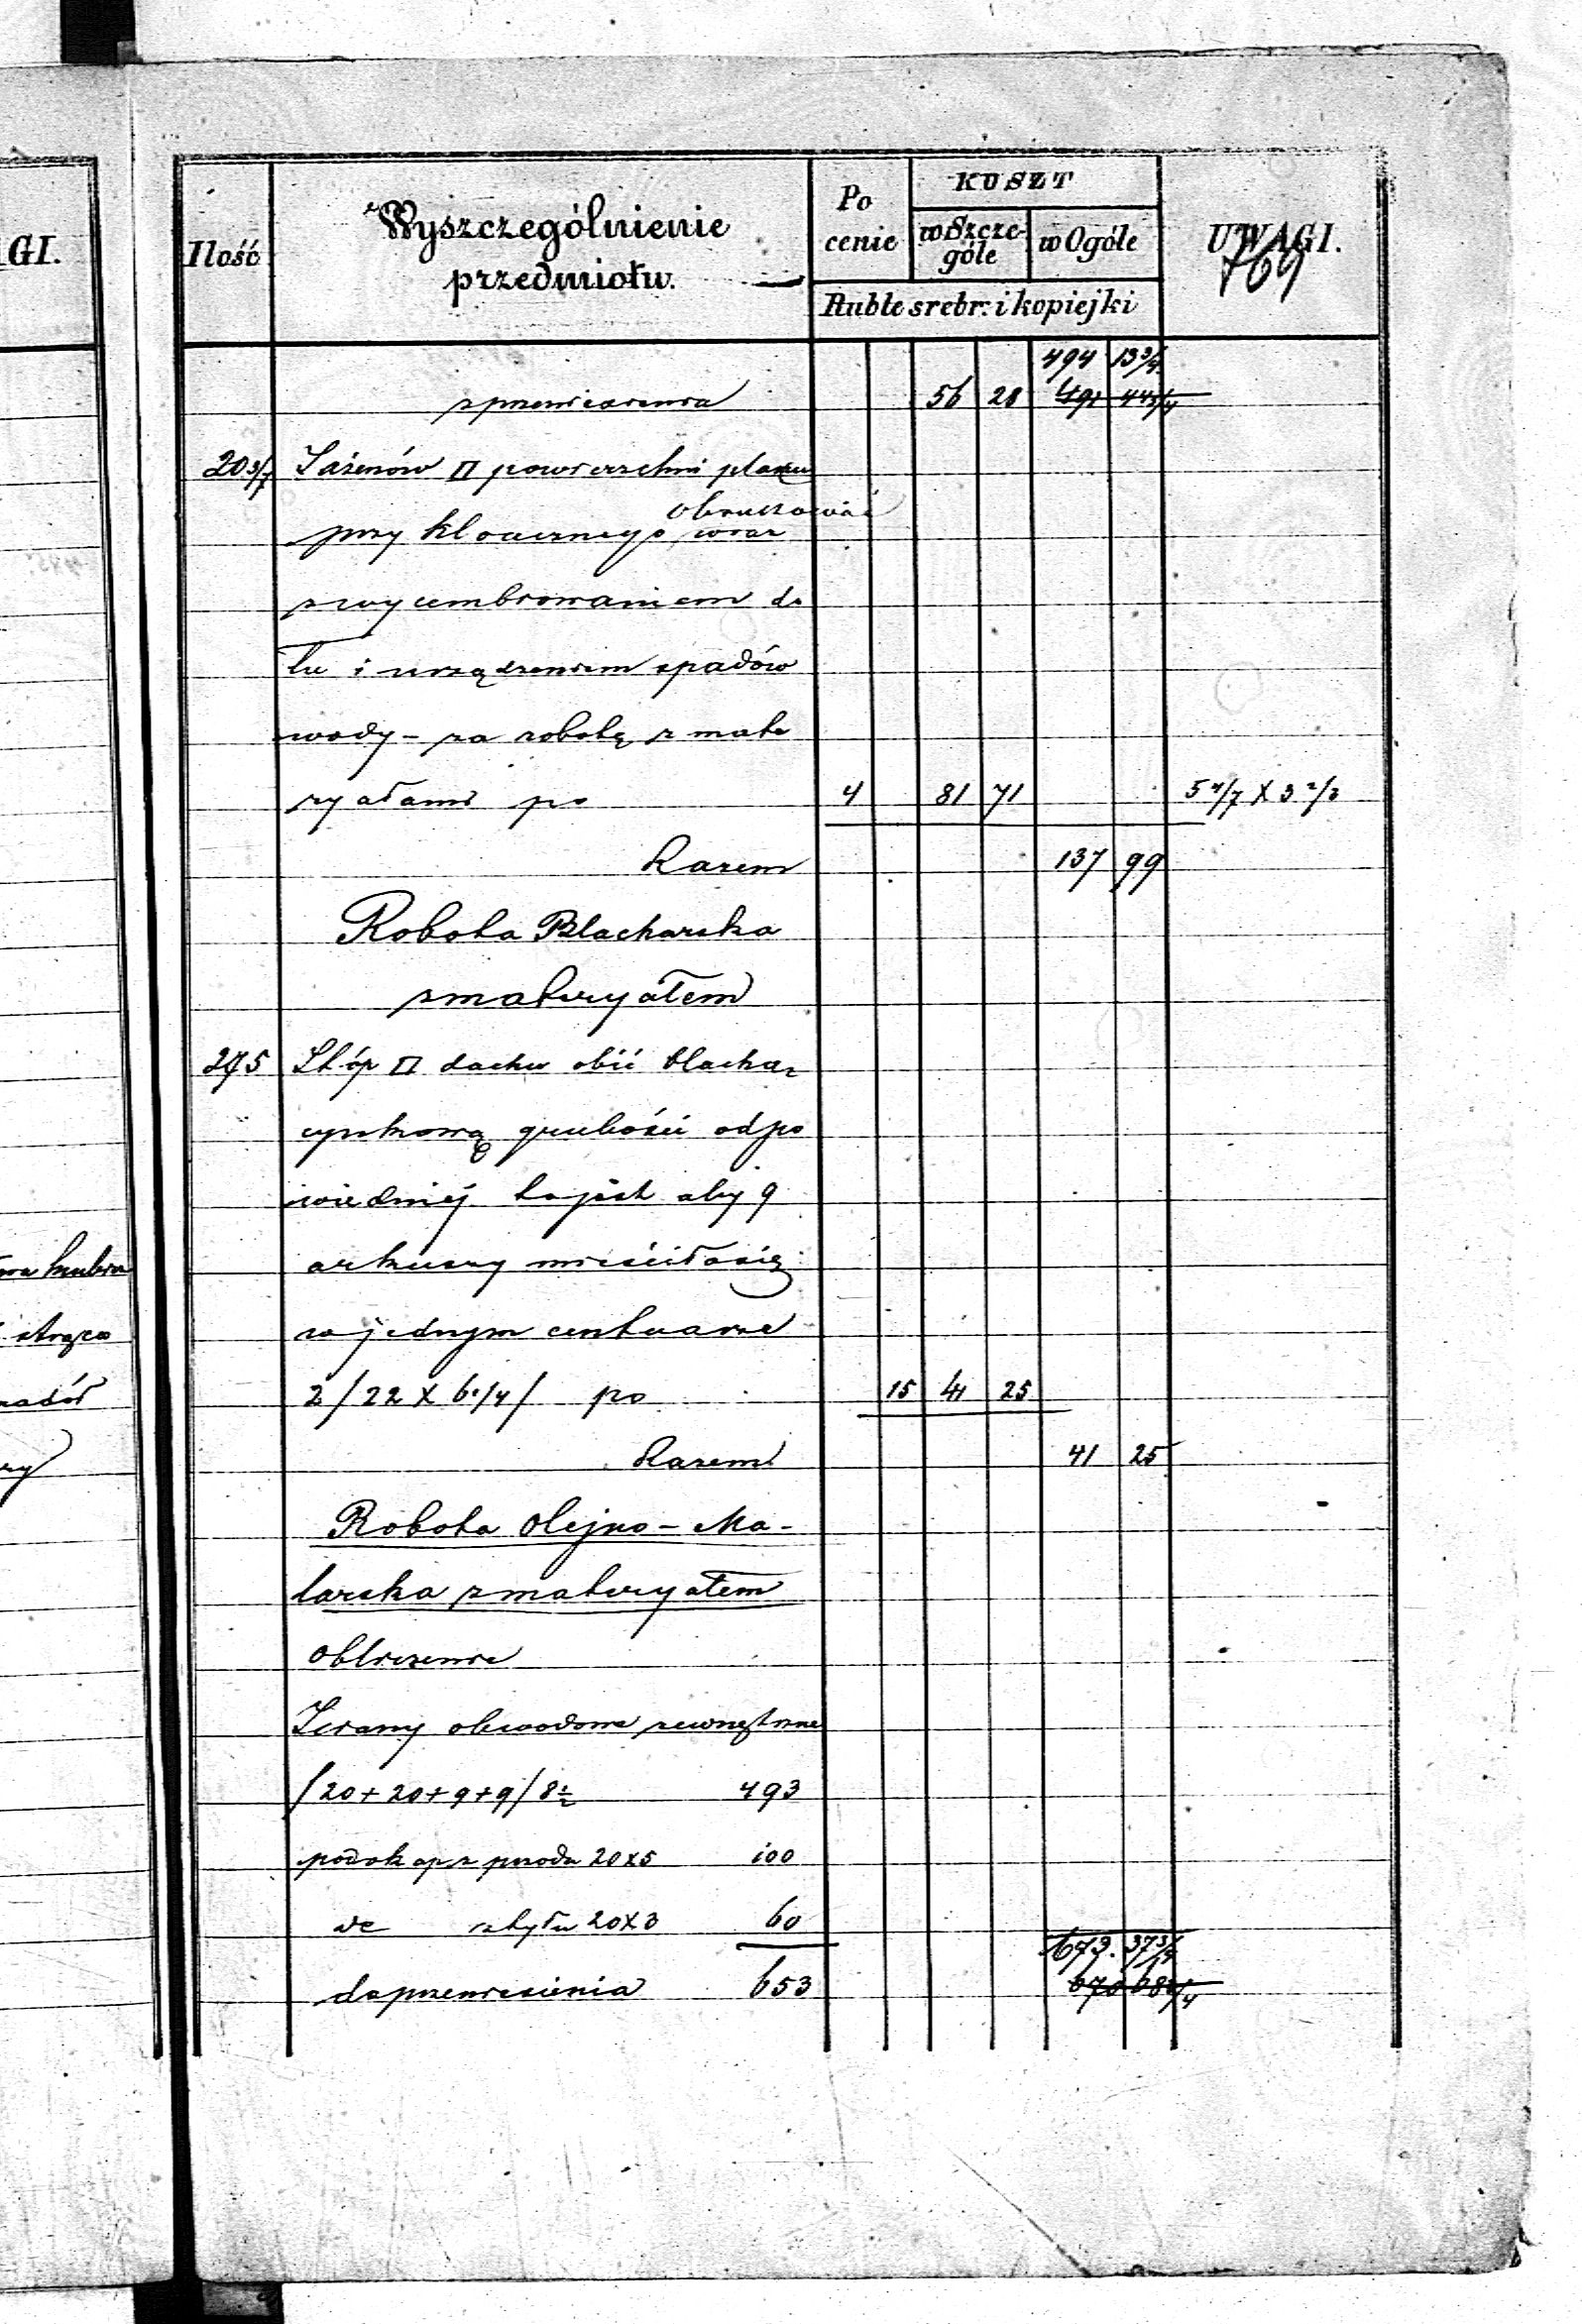 GI.
Ilość
Wyszczególnienie
przedmiotu.
Po
cenie
KOSZT
w Szcze-
góle
w Ogóle
Ruble srebr: i kopiejki
UWAGI.
769
494 13 3/4
z przeniesienia 56 28 491 44 3/4
20 3/7 Sążenów □ powierzchni placu
obrukować
przy kloacznego, wraz
z wycembrowaniem do
łu i urządzeniem spadów
wody - za robotę z mate
ryałami po 4 81 71 5 4/7 X 3 2/3
Razem 137 99
Robota Blacharska
z materyałem
275 Stóp □ dachu obić blachą
cynkową grubości odpo
wiedniej to jest aby 9
arkuszy mieściło się
w jednym centnarze
2/22 X 6 1/4/ po 15 41 25
Razem 41 25
Robota Olejno - Ma-
larska z materyałem
Obliczenie
Ściany obwodowe zewnętrzne
/20+20+9+9/8 1/2 493
podokap z przodu 20x5 100
de z tyłu 20X3 60
673. 37 3/4
do przeniesienia 653 670 68 3/4